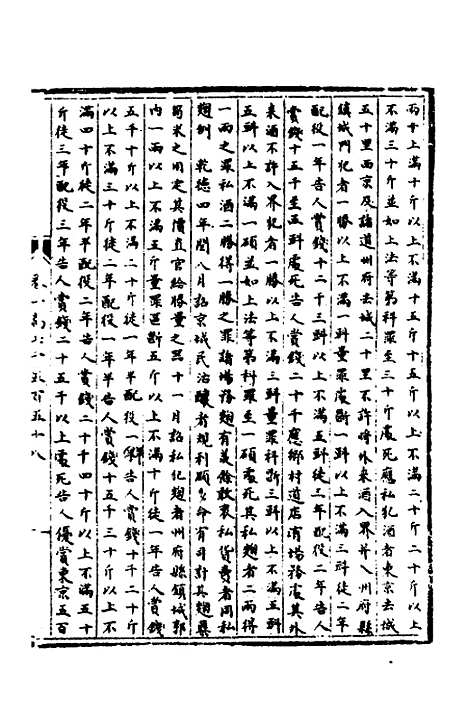 兩十上滿十斤以上不滿十五斤十五斤以上不滿二十斤二十斤以上
不滿三十斤並如上法等第科罪至三十斤處死應私犯酒者東京去城
五十里西京及諸道州府去城二十里不許將外來酒入界并入州府縣
鎮城門犯者一勝以上不滿一㪷量罪處斷一㪷以上不滿三㪷徒二年
配役一年告人賞錢十二千三㪷以上不滿五㪷徒三年配役二年告人
賞錢十五千至五㪷處死告人賞錢二十千應鄉村道店有場務處其外
來酒不許入界犯者一勝以上不滿三㪷量罪科斷三㪷以上不滿五㪷
五㪷以上不滿一碩並如上法等第科罪至一碩處死其私麴者二兩得
一兩之罪私酒二勝得一勝之罪諸場務麴有羨餘敢衷私貨賣者同私
麴例 乾德四年閏八月詔京城民治釀者規利頗多命有司計其麴糵
筍米之用定其價直官給勝量之器十一月詔私犯麴者州府縣鎮城郭
內一兩以上不滿五斤量罪區斷五斤以上不滿十斤徒一年告人賞錢
五千十斤以上不滿二十斤徒一年半配役一年告人賞錢十千二十斤
以上不滿三十斤徒二年配役一年半告人賞錢十五千三十斤以上不
滿四十斤徒二年半配役二年告人賞錢二十千四十斤以上不滿五十
斤徒三年配役三年告人賞錢二十五千以上處死告人優賞東京五百